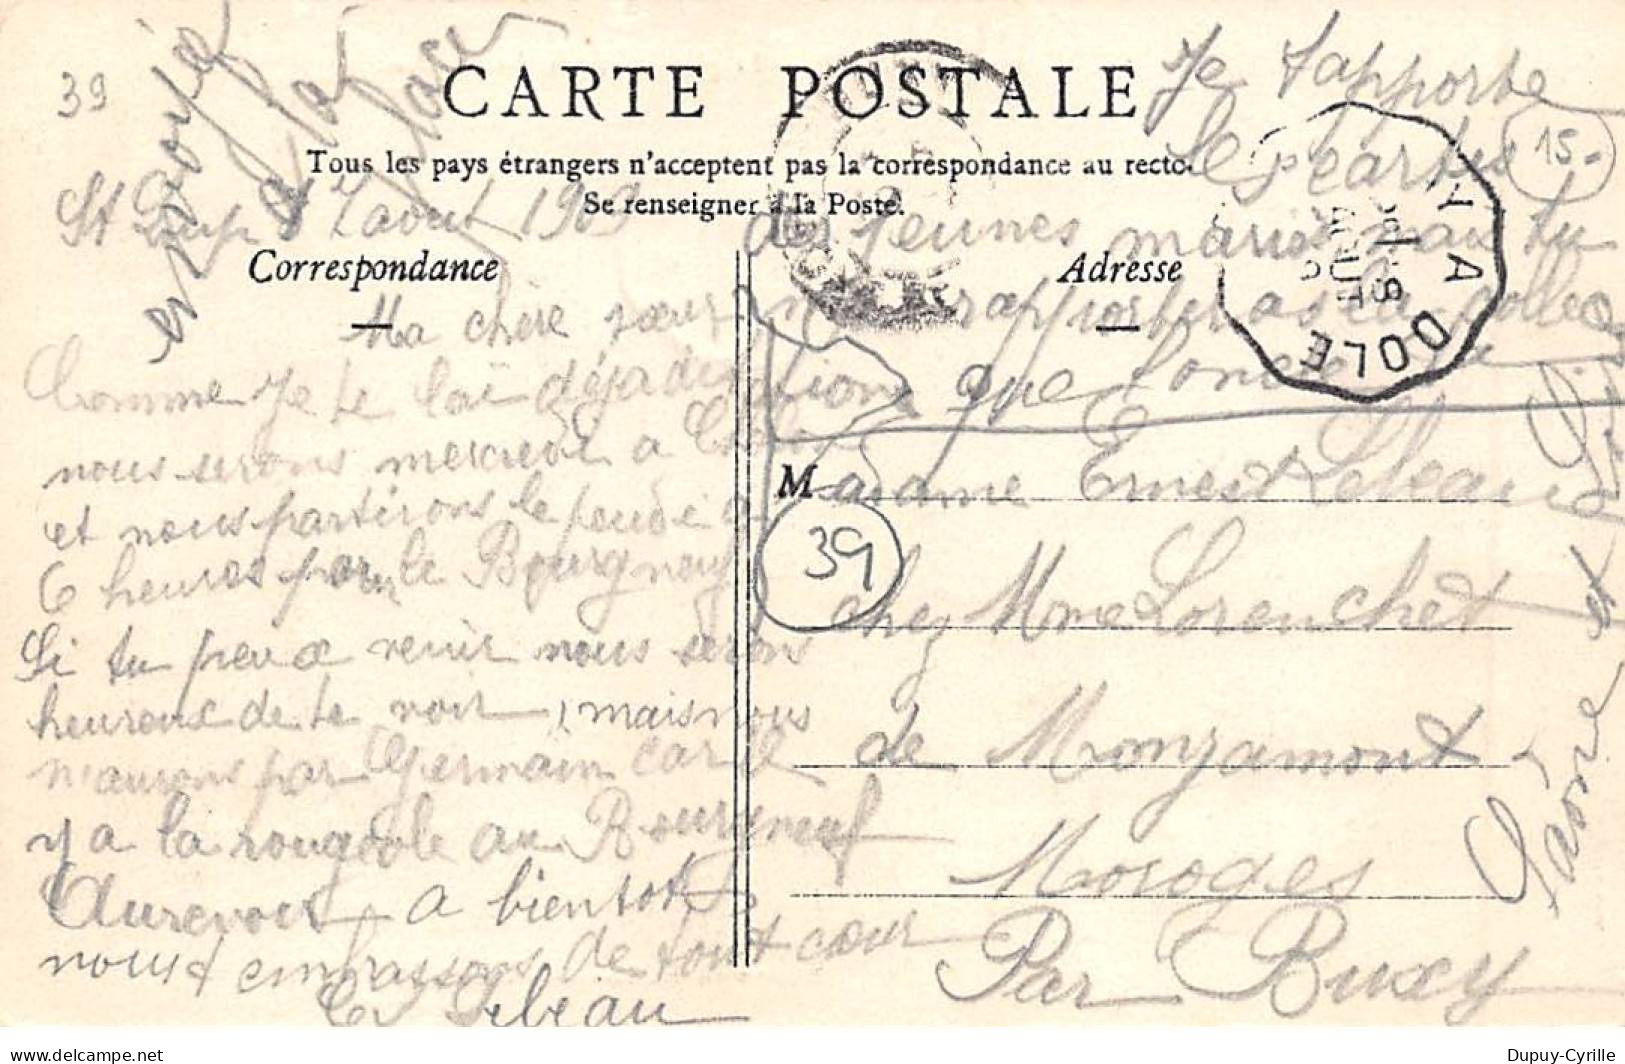 39
CARTE POSTALE
Tous les pays étrangers n'acceptent pas la correspondance au recto.
Se renseigner à la Poste.
Correspondance
Adresse
15-
St Loup 7 aout 1909
Ma chère sœur
Comme je te lai déja dit
nous serons mercredi a
et nous partirons le jeudi a
6 heures pour le Bourgneuf
Si tu peux venir nous serons
heureux de te voir, mais nous
n'aurons pas Germain car il
y a la rougeole au Bourgneuf
Aurevoir a bientot
nous t embrassons de tout cœur
Lebeau
Je t'apporte
les cartes
des jeunes mariés mais tu
rapporteras la collec
tion que
Madame Ernest Lebeau
39
chez Mme Lorenchet
de Monjamont
Moroges
Par Buxy
Saône et
A DOLE
18
AOUT
delcampe.net
Dupuy-Cyrille